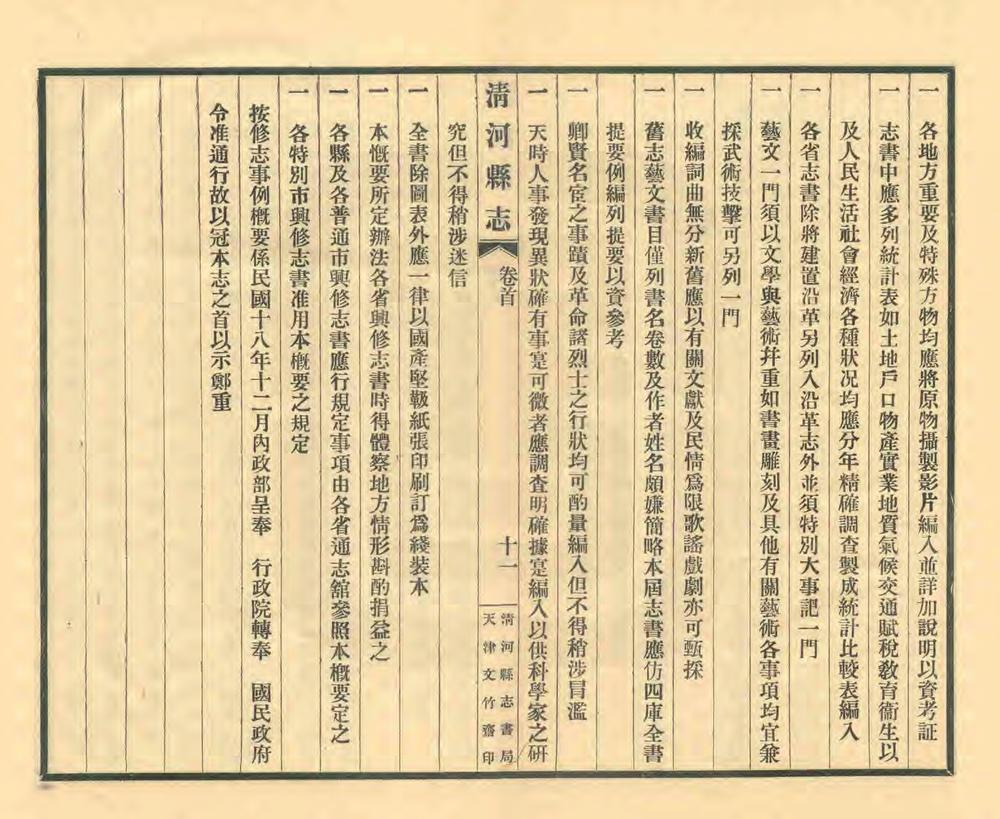 一　各地方重要及特殊方物均應將原物攝製影片編入並詳加說明以資考証
一　志書中應多列統計表如土地戶口物產實業地質氣候交通賦稅敎育衞生以
及人民生活社會經濟各種狀况均應分年精確調查製成統計比較表編入
一　各省志書除將建置沿革另列入沿革志外並須特別大事記一門
一　藝文一門須以文學與藝術幷重如書畫雕刻及具他有關藝術各事項均宜兼
採武術技擊可另列一門
一　收編詞曲無分新舊應以有關文獻及民情爲限歌謠戲劇亦可甄採
一　舊志藝文書目僅列書名卷數及作者姓名頗嫌簡略本屆志書應仿四庫全書
提要例編列提要以資參考
一　鄉賢名宦之事蹟及革命諸烈士之行狀均可酌量編入但不得稍涉冒濫
一　天時人事發現異狀確有事寔可徵者應調査明確據寔編入以供科學家之研
清河縣志　卷首　十一　清河縣志書局　天津文竹齋印
究但不得稍涉迷信
一　全書除圖表外應一律以國產堅靱紙張印刷訂爲綫裝本
一　本慨要所定辦法各省興修志書時得體察地方情形斟酌損益之
一　各縣及各普通市興修志書應行規定事項由各省通志舘參照本槪要定之
一　各特別市興修志書准用本槪要之規定
按修志事例槪要係民國十八年十二月內政部呈奉　行政院轉奉　國民政府
令准通行故以冠本志之首以示鄭重